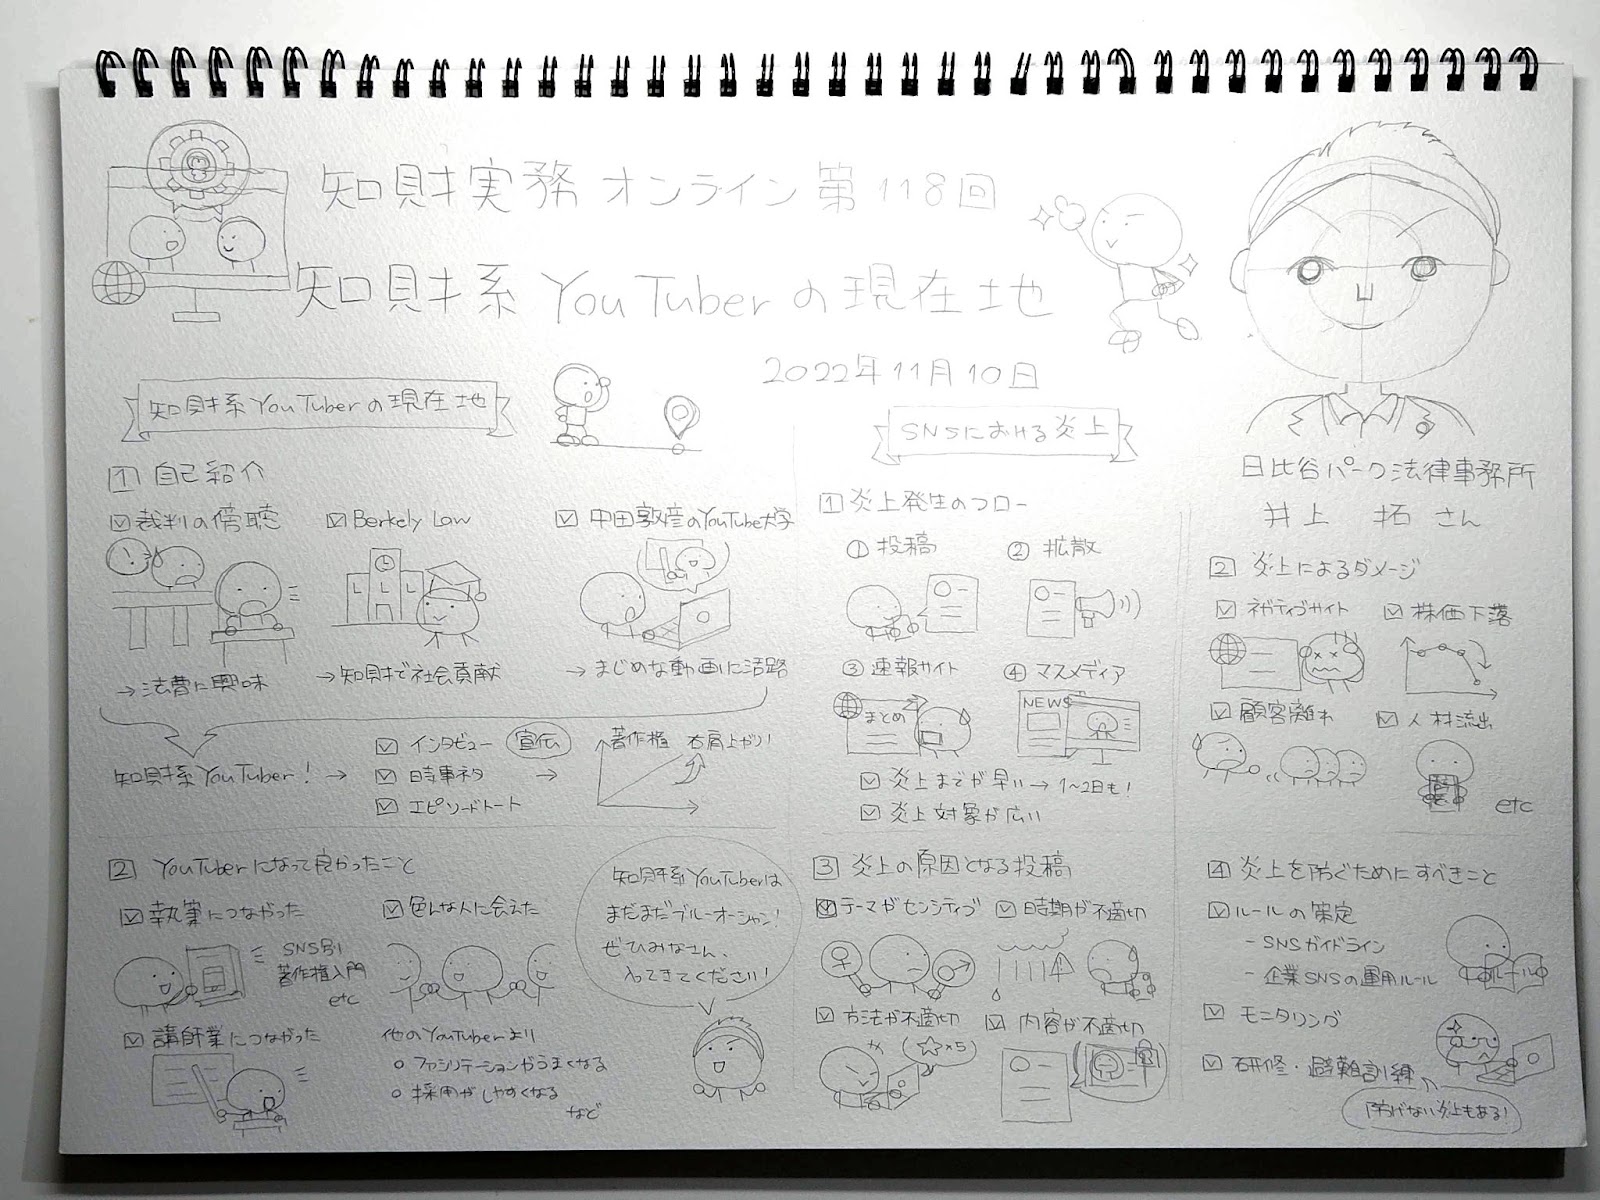 知財実務オンライン第118回
知財系YouTuberの現在地
2022年11月10日
知財系YouTuberの現在地
1 自己紹介
裁判の傍聴
Berkely Law
中田敦彦のYouTube大学
→法曹に興味
→知財で社会貢献
→まじめな動画に活路
知財系YouTuber!→
インタビュー 宣伝
時事ネタ →
エピソードトーク
著作権 右肩上がり!
2 YouTuberになって良かったこと
執筆につながった
色んな人に会えた
SNS別
著作権入門
etc
講師業につながった
他のYouTuberより
ファシリテーションがうまくなる
採用がしやすくなる
など
知財系YouTuberは
まだまだブルーオーシャン!
ぜひみなさん、
入ってきてください!
SNSにおける炎上
1 炎上発生のフロー
① 投稿
② 拡散
③ 速報サイト
④ マスメディア
まとめ
NEWS
炎上までが早い→1~2日も!
炎上対象が広い
3 炎上の原因となる投稿
テーマがセンシティブ
時期が不適切
方法が不適切
内容が不適切
☆×5
日比谷パーク法律事務所
井上 拓 さん
2 炎上によるダメージ
ネガティブサイト
株価下落
顧客離れ
人材流出
etc
4 炎上を防ぐためにすべきこと
ルールの策定
- SNSガイドライン
- 企業SNSの運用ルール
ルール
モニタリング
研修・避難訓練
防げない炎上もある!